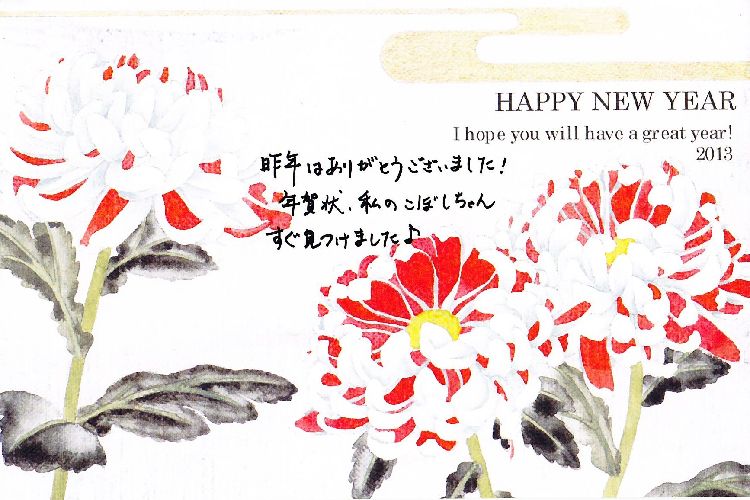 HAPPY NEW YEAR
I hope you will have a great year!
2013
昨年はありがとうございました！
年賀状、私のこぼしちゃん
すぐ見つけました♪